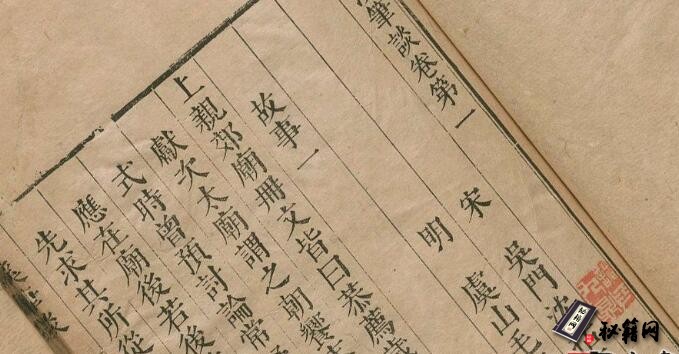 筆談卷第一
宋 吳門沈
明 虞山毛
故事一
上親郊廟冊文皆曰恭薦歲
獻次太廟謂之朝饗
式時曾預討論常
應在廟後若後
先求其所從
秘籍网